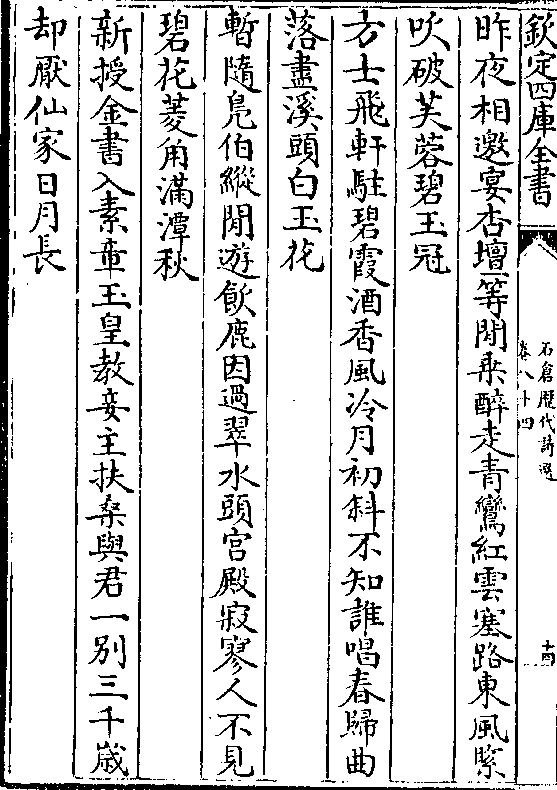 欽定四庫全書
石倉歷代詩選
卷八十四
十四
昨夜相邀宴杏壇等閒乗醉走青鸞紅雲塞路東風緊
吹破芙蓉碧玉冠
方士飛軒駐碧霞酒香風冷月初斜不知誰唱春歸曲
落盡溪頭白玉花
暫隨鳬伯縱閒遊飲鹿因過翠水頭宫殿寂寥人不見
碧花菱角滿潭秋
新授金書入素童玉皇教妾主扶桑與君一别三千歳
却厭仙家日月長